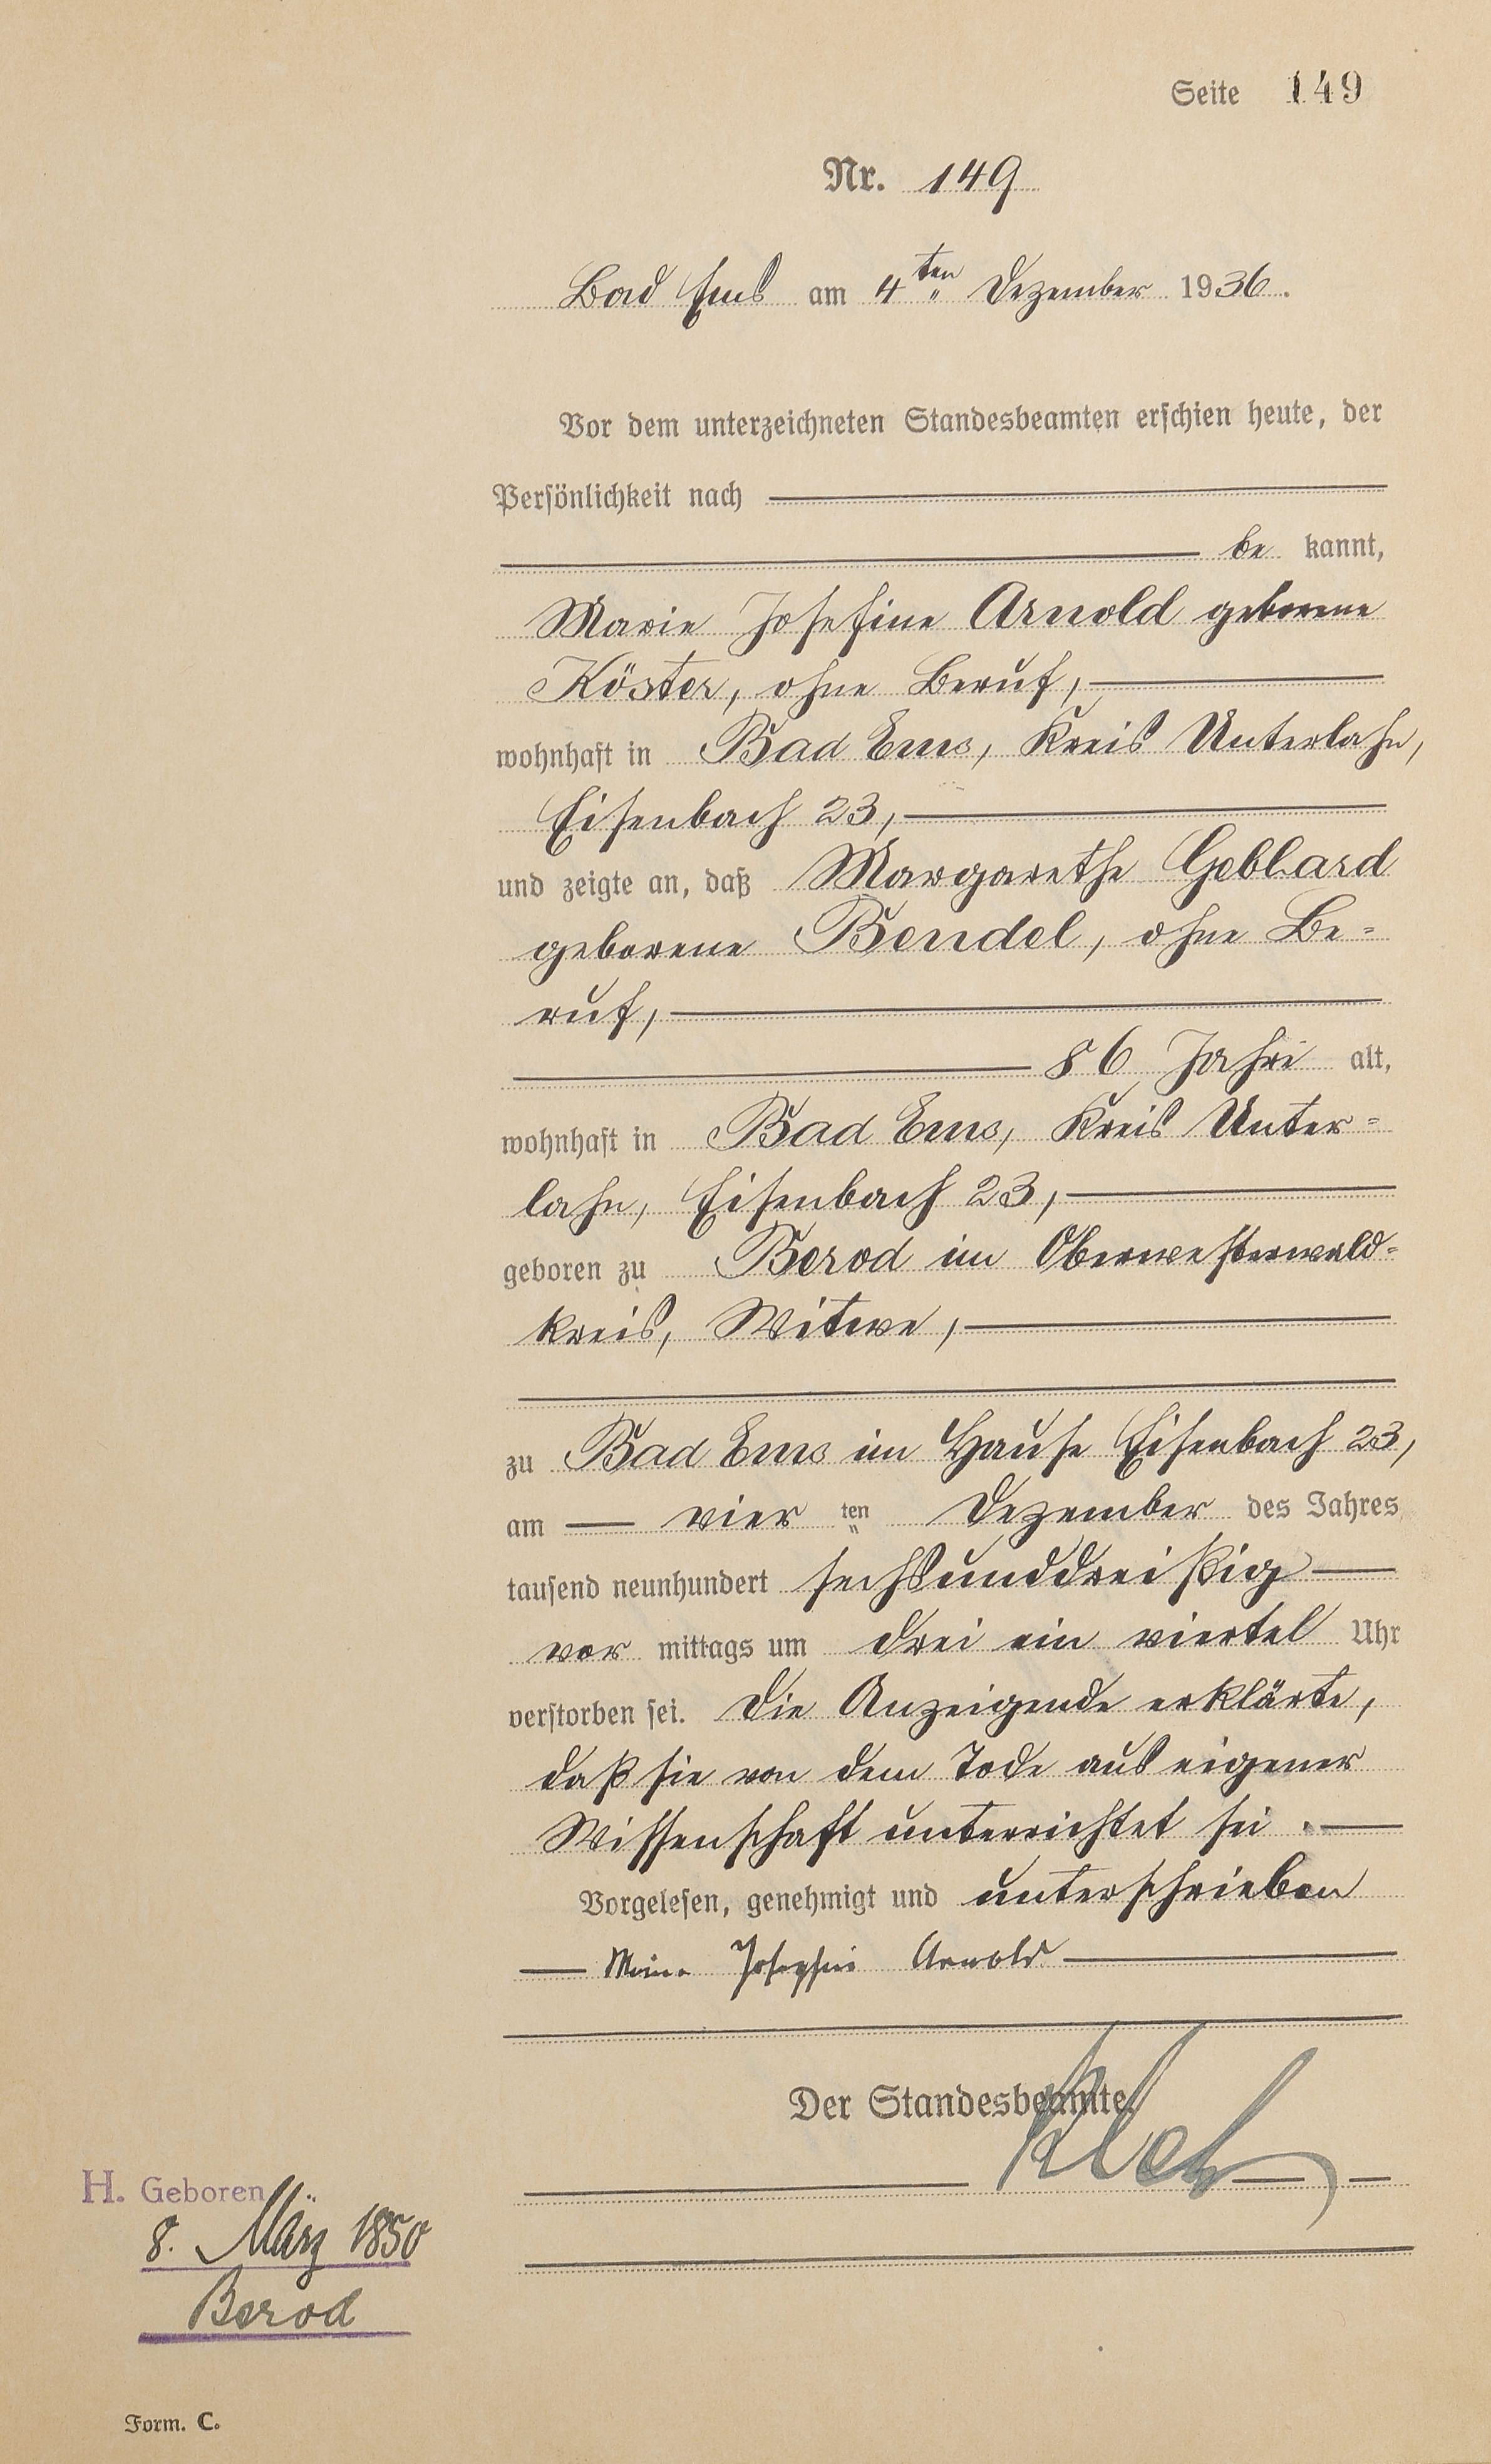 Seite 149
Nr. 149
Bad Ems am 4ten Dezember 1936.
Vor dem unterzeichneten Standesbeamten erschien heute, der
Persönlichkeit nach
be kannt,
Marie Josefine Arnold geborene
Köster, ohne Beruf,
wohnhaft in Bad Ems, Kreis Unterlahn,
Eisenbach 23,
und zeigte an, daß Margarethe Gebhard
geborene Bendel, ohne Be=
ruf,
86 Jahre alt,
wohnhaft in Bad Ems, Kreis Unter=
lahn, Eisenbach 23,
geboren zu Berod im Oberwesterwald=
kreis, Witwe,
zu Bad Ems im Hause Eisenbach 23,
am vier ten Dezember des Jahres
tausend neunhundert sechsunddreißig
vor mittags um drei ein viertel Uhr
verstorben sei. Die Anzeigende erklärte,
daß sie von dem Tode aus eigener
Wissenschaft unterrichtet sei.
Vorgelesen, genehmigt und unterschrieben
Marie Josephine Arnold
Der Standesbeamte.
H. Geboren
8. März 1850
Berod
Form. C.